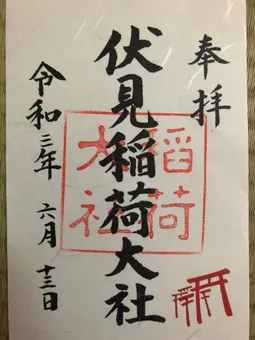 奉拝
伏見稲荷大社
令和三年 六月 十三日
稲荷
大社